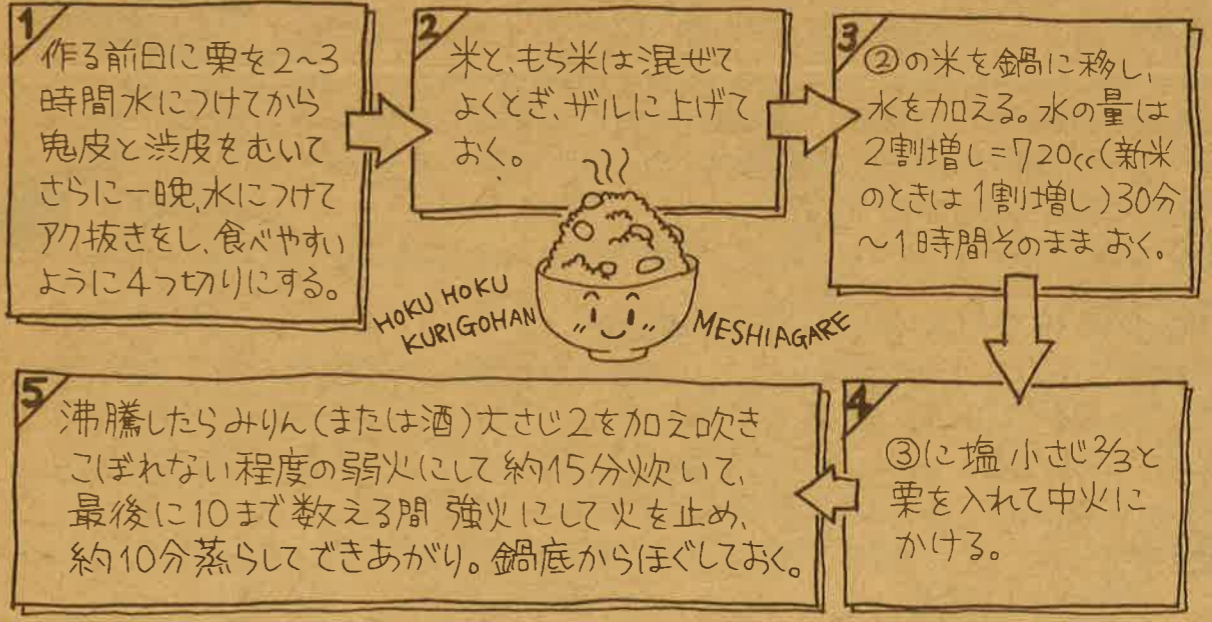 1
作る前日に栗を2~3
時間水につけてから
鬼皮と渋皮をむいて
さらに一晩、水につけて
アク抜きをし、食べやすい
ように4つ切りにする。
2
米と、もち米は混ぜて
よくとぎ、ザルに上げて
おく。
3
②の米を鍋に移し、
水を加える。水の量は
2割増し=720cc(新米
のときは1割増し)30分
~1時間そのままおく。
HOKU HOKU
KURIGOHAN
MESHIAGARE
4
③に塩小さじ2/3と
栗を入れて中火に
かける。
5
沸騰したらみりん(または酒)大さじ2を加え吹き
こぼれない程度の弱火にして約15分炊いて、
最後に10まで数える間 強火にして火を止め、
約10分蒸らしてできあがり。鍋底からほぐしておく。